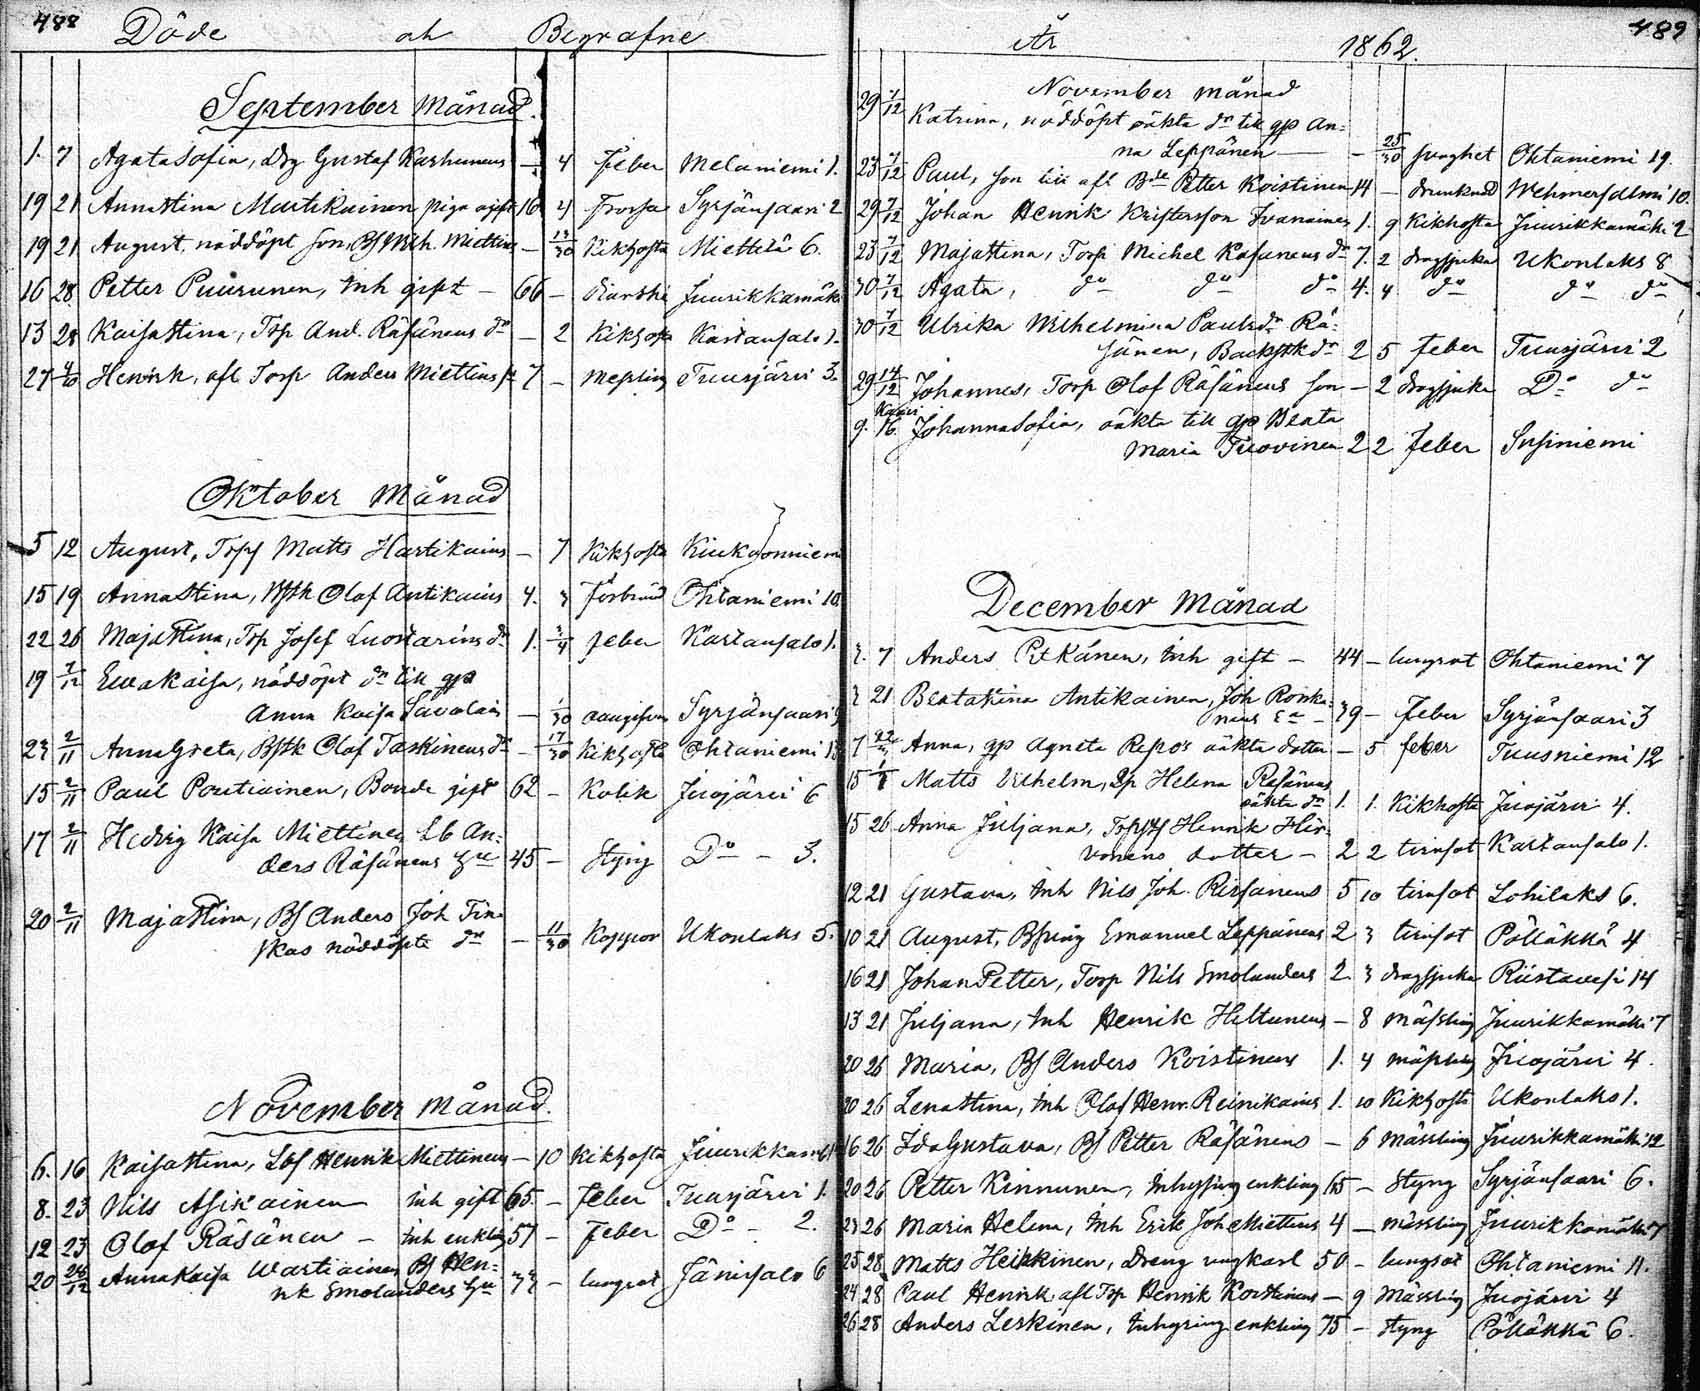 488 Döde och Begrafne
September Månad.
1. 7 Agata Sofia, Drg Gustaf Karhunens — 4 Feber Melaniemi 1.
19 21 Anna Stina Martikainen piga ogift 16 4 Frossa Syrjänsaari 2
19 21 August, nöddöpt son, Bf Wilh. Miettin — 13/30 Kikhosta Miettilä 6.
16 28 Petter Puurunen, Inh gift — 66 — Juurikkamäki
13 28 Kaisa Stina, Trp And. Räsänens dr — 2 Kikhosta Kartansalo 1.
27 4/10 Henrik, afl Torp Anders Miettins 7 — Messling Tuusjärvi 3.
Oktober Månad
5 12 August, Matts Hartikains — 7 Kikhosta
15 19 Anna Stina, Olof Antikains 4. 3 Förbränd Ohtaniemi 10.
22 26 Maja Stina, Trp Josef Luostarins dr 1. 3/4 feber Kartansalo 1.
19 Ewa Kaisa, nöddöpt dr till gp
Anna Kaisa Savolain — 1/30 Syrjänsaari
23 2/11 Anna Greta, Olof Taskinens dr — 17/30 Kikhosta Ohtaniemi
15 2/11 Paul Pontiainen, Bonde gift 62 — Kolik Juojärvi 6
17 2/11 Hedvig Kaisa Miettinen Lb An:
ders Räsänens hu 45 — Styng Do — 3.
20 2/11 Maja Stina, Bf Anders Joh Tin
skas nöddöpte dr — 11/30 Koppor Ukonlaks 5.
November Månad.
6. 16 Kaisa Stina, Lbf Henrik Miettinens — 10 Kikhosta
8. 23 Nils Asikainen Inh gift 65 — feber Tuusjärvi 1.
12 23 Olof Räsänen — Inh enkling 57 — Feber Do — 2.
20 Anna Kaisa Wartiainen Bf Hen:
rik Smolanders hu — lungsot Jänissalo 6
År 1862. 489
November Månad
29 7/12 Katrina, nöddöpt oäkta dr till gp An:
na Leppänen — — 25/30 svaghet Ohtaniemi 19.
23 7/12 Paul, son till afl Bde Petter Koistinen 14 — drunknad Wehmersalmi 10.
29 7/12 Johan Henrik Kristersson Ivanainen 1. 9 Kikhosta Juurikkamäki 2
23 7/12 Maja Stina, Torp Michel Räsänens dr 7. 2 dragsjuka Ukonlaks 8
30 7/12 Agata, do do do 4. 4 do do do
30 7/12 Ulrika Wilhelmina Paulsdr Rä:
sänen, Backstk dr 2 5 feber Tuusjärvi 2
29 14/12 Johannes, Torp Olof Räsänens son — 2 dragsjuka Do do
9. 16. Johanna Sofia, oäkta till gp Beata
Maria Tuovinen 2 2 feber Susiniemi
December Månad
2. 7 Anders Pitkänen, Inh gift — 44 — lungsot Ohtaniemi 7
2 21 Beata Antikainen, Joh Ronka:
nens En — 39 — feber Syrjänsaari 3
7 Anna, gp Agneta Repo's oäkta dotter — 5 feber Tuusniemi 12
15 Matts Wilhelm, gp Helena Räsänens
oäkta 1. 1. Kikhosta Juojärvi 4.
15 26 Anna Juljana, Henrik Hir:
vonens dotter — 2 2 tvinsot Kartansalo 1.
12 21 Gustava, Inh Nils Joh. Rissanens 5 10 tvinsot Lohilaks 6.
10 21 August, Emanuel Leppänens 2 3 tvinsot Pölläkkä 4
16 21 Johan Petter, Torp Nils Smolanders 2 3 dragsjuka Riistavesi 14
13 21 Juljana, Inh Henrik Hiltunens — 8 mässling Juurikkamäki 7
20 26 Maria, Bf Anders Koistinens 1. 4 mässling Juojärvi 4.
20 26 Lena Stina, Inh Olof Henr. Reinikains 1. 10 Kikhosta Ukonlaks 1.
16 26 Ida Gustava, Bf Petter Räsänens — 6 mässling Juurikkamäki 12
20 26 Petter Kinnunen, Inhysing enkling 65 — Styng Syrjänsaari 6.
23 26 Maria Helena, Inh Erik Joh Miettins 4 — mässling Juurikkamäki 7
25 28 Matts Heikkinen, Dreng ungkarl 50 — lungsot Ohtaniemi 11.
24 28 Paul Henrik afl Trp Henrik Koistinens — 9 Mässling Juojärvi 4
26 28 Anders Leskinen, Inhysing enkling 75 — styng Pölläkkä 6.